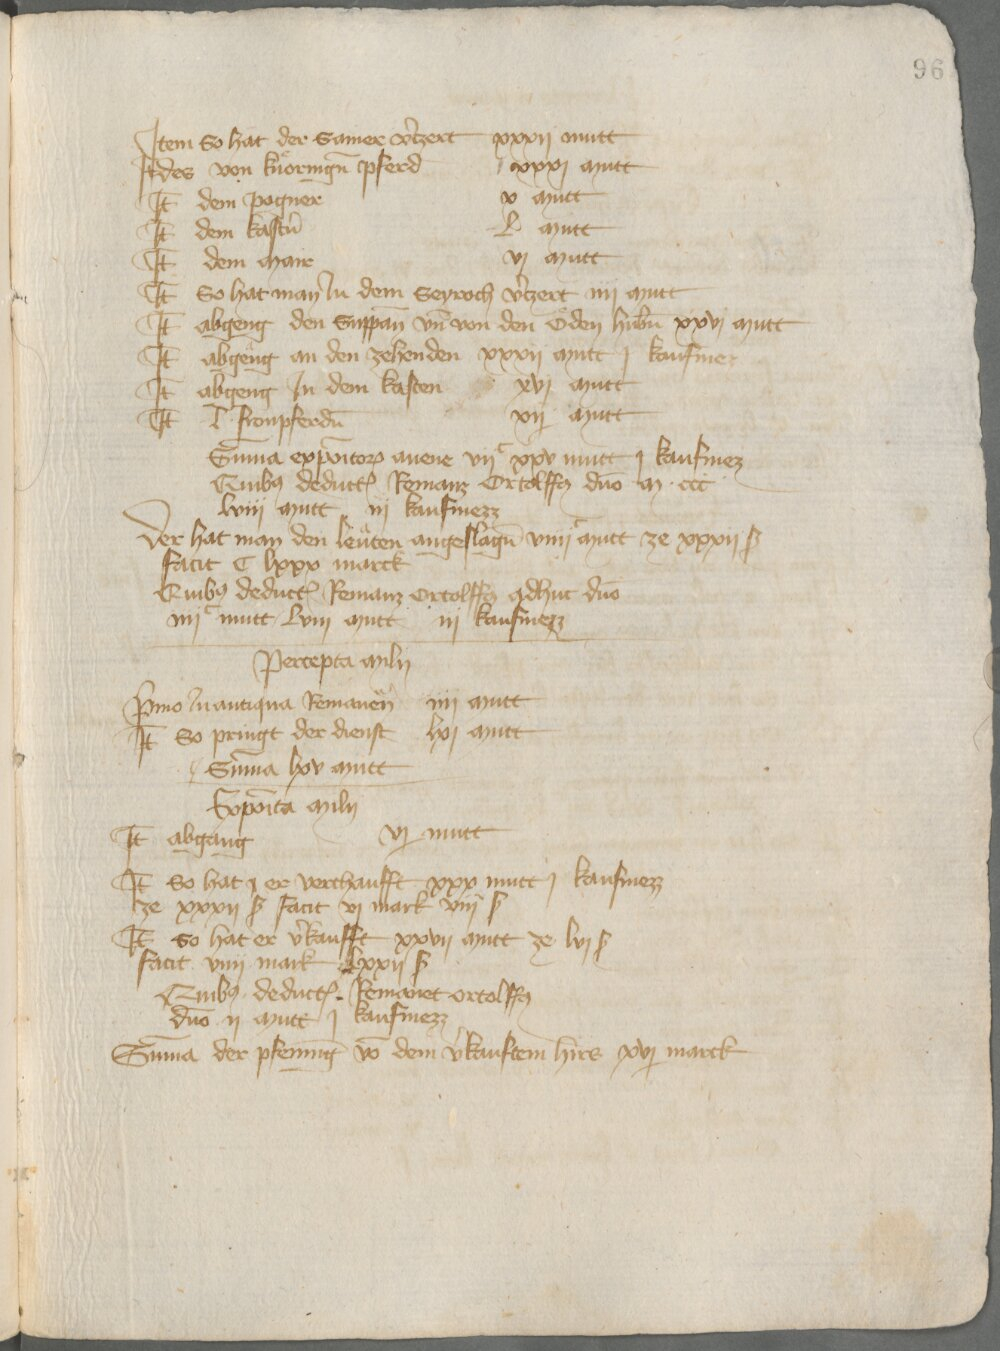 96
Item So hat der Samer v̄tzert xxxii mutt
It des von kůoringn̄ pferd xxxj mutt
It dem pogner v mutt
It dem kastn̄ L mutt
It dem mair vj mutt
It So hat man In dem Seyroch v̄tzert iiij mutt
It abgeng den Suppan̄ vn̄ von den Öden hubn̄ xxvj mutt
It abgeng an den zehenden xxxii mutt j kaufmez
It abgeng In dem kasten xvj mutt
It fronpferdn̄ xij mutt
Sum̄a expōitoꝝ auene vijᶜ xxv mutt j kaufmez
Quibꝫ deductꝭ Remanꝫ Ortolffꝫ dn̄o m ccc
lviii mutt iij kaufmezz
Der hat man den leůten angeslagn̄ viiijᶜ mutt ze xxxii ꝭ
facit C lxxx marck
Quibꝫ deductꝭ Remanꝫ Ortolffꝫ adhuc dn̄o
iiijᶜ mutt Lviii mutt iij kaufmezz
Percepta milij
P̄mo In antiqua Remanen̄ iiij mutt
It So pringt der dienst lxj mutt
Sum̄a lxv mutt
Expōita milij
It abgang vj mutt
It so hat er verchaufft xxx mutt j kaufmezz
ze xxxii ꝭ facit vi mark viii ꝭ
It so hat er v̄kaufft xxvii mutt ze lvj ꝭ
facit viiii mark Lxxii ꝭ
Quibꝫ deductꝭ Remanet ortolffꝫ
dn̄o ii mutt j kaufmezz
Sum̄a der pfenning vō dem v̄kauftem hirs xvj marck